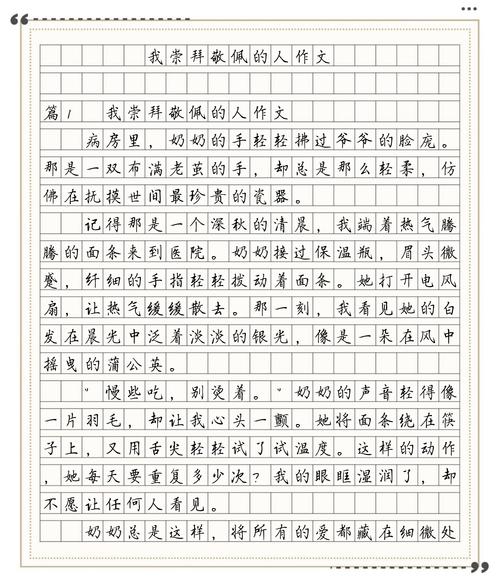 我崇拜敬佩的人作文
篇1 我崇拜敬佩的人作文
病房里，奶奶的手轻轻拂过爷爷的脸庞。
那是一双布满老茧的手，却总是那么轻柔，仿
佛在抚摸世间最珍贵的瓷器。
记得那是一个深秋的清晨，我端着热气腾
腾的面条来到医院。奶奶接过保温瓶，眉头微
蹙，纤细的手指轻轻拨动着面条。她打开电风
扇，让热气缓缓散去。那一刻，我看见她的白
发在晨光中泛着淡淡的银光，像是一朵在风中
摇曳的蒲公英。
"慢些吃，别烫着。"奶奶的声音轻得像
一片羽毛，却让我心头一颤。她将面条绕在筷
子上，又用舌尖轻轻试了试温度。这样的动作
，她每天要重复多少次？我的眼眶湿润了，却
不愿让任何人看见。
奶奶总是这样，将所有的爱都藏在细微处